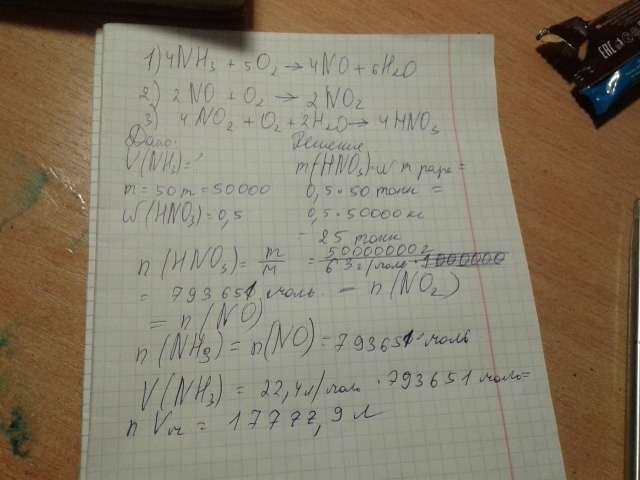 1) 4NH₃ + 5O₂ → 4NO + 6H₂O
2) 2NO + O₂ → 2NO₂
3) 4NO₂ + O₂ + 2H₂O → 4HNO₃
Дано: Решение
V(NH₃)=? m(HNO₃)=w m раp =
m = 50 т = 50000 0,5 · 50 тонн =
W(HNO₃)=0,5 0,5 · 50000 кг
= 25 тонн
n(HNO₃) = m/M = 50000000г / 63г/моль · 1000000
= 793651 моль = n(NO₂)
= n(NO)
n(NH₃) = n(NO) = 793651 моль
V(NH₃) = 22,4л/моль · 793651 моль =
n Vm = 17777,9 л
EAC